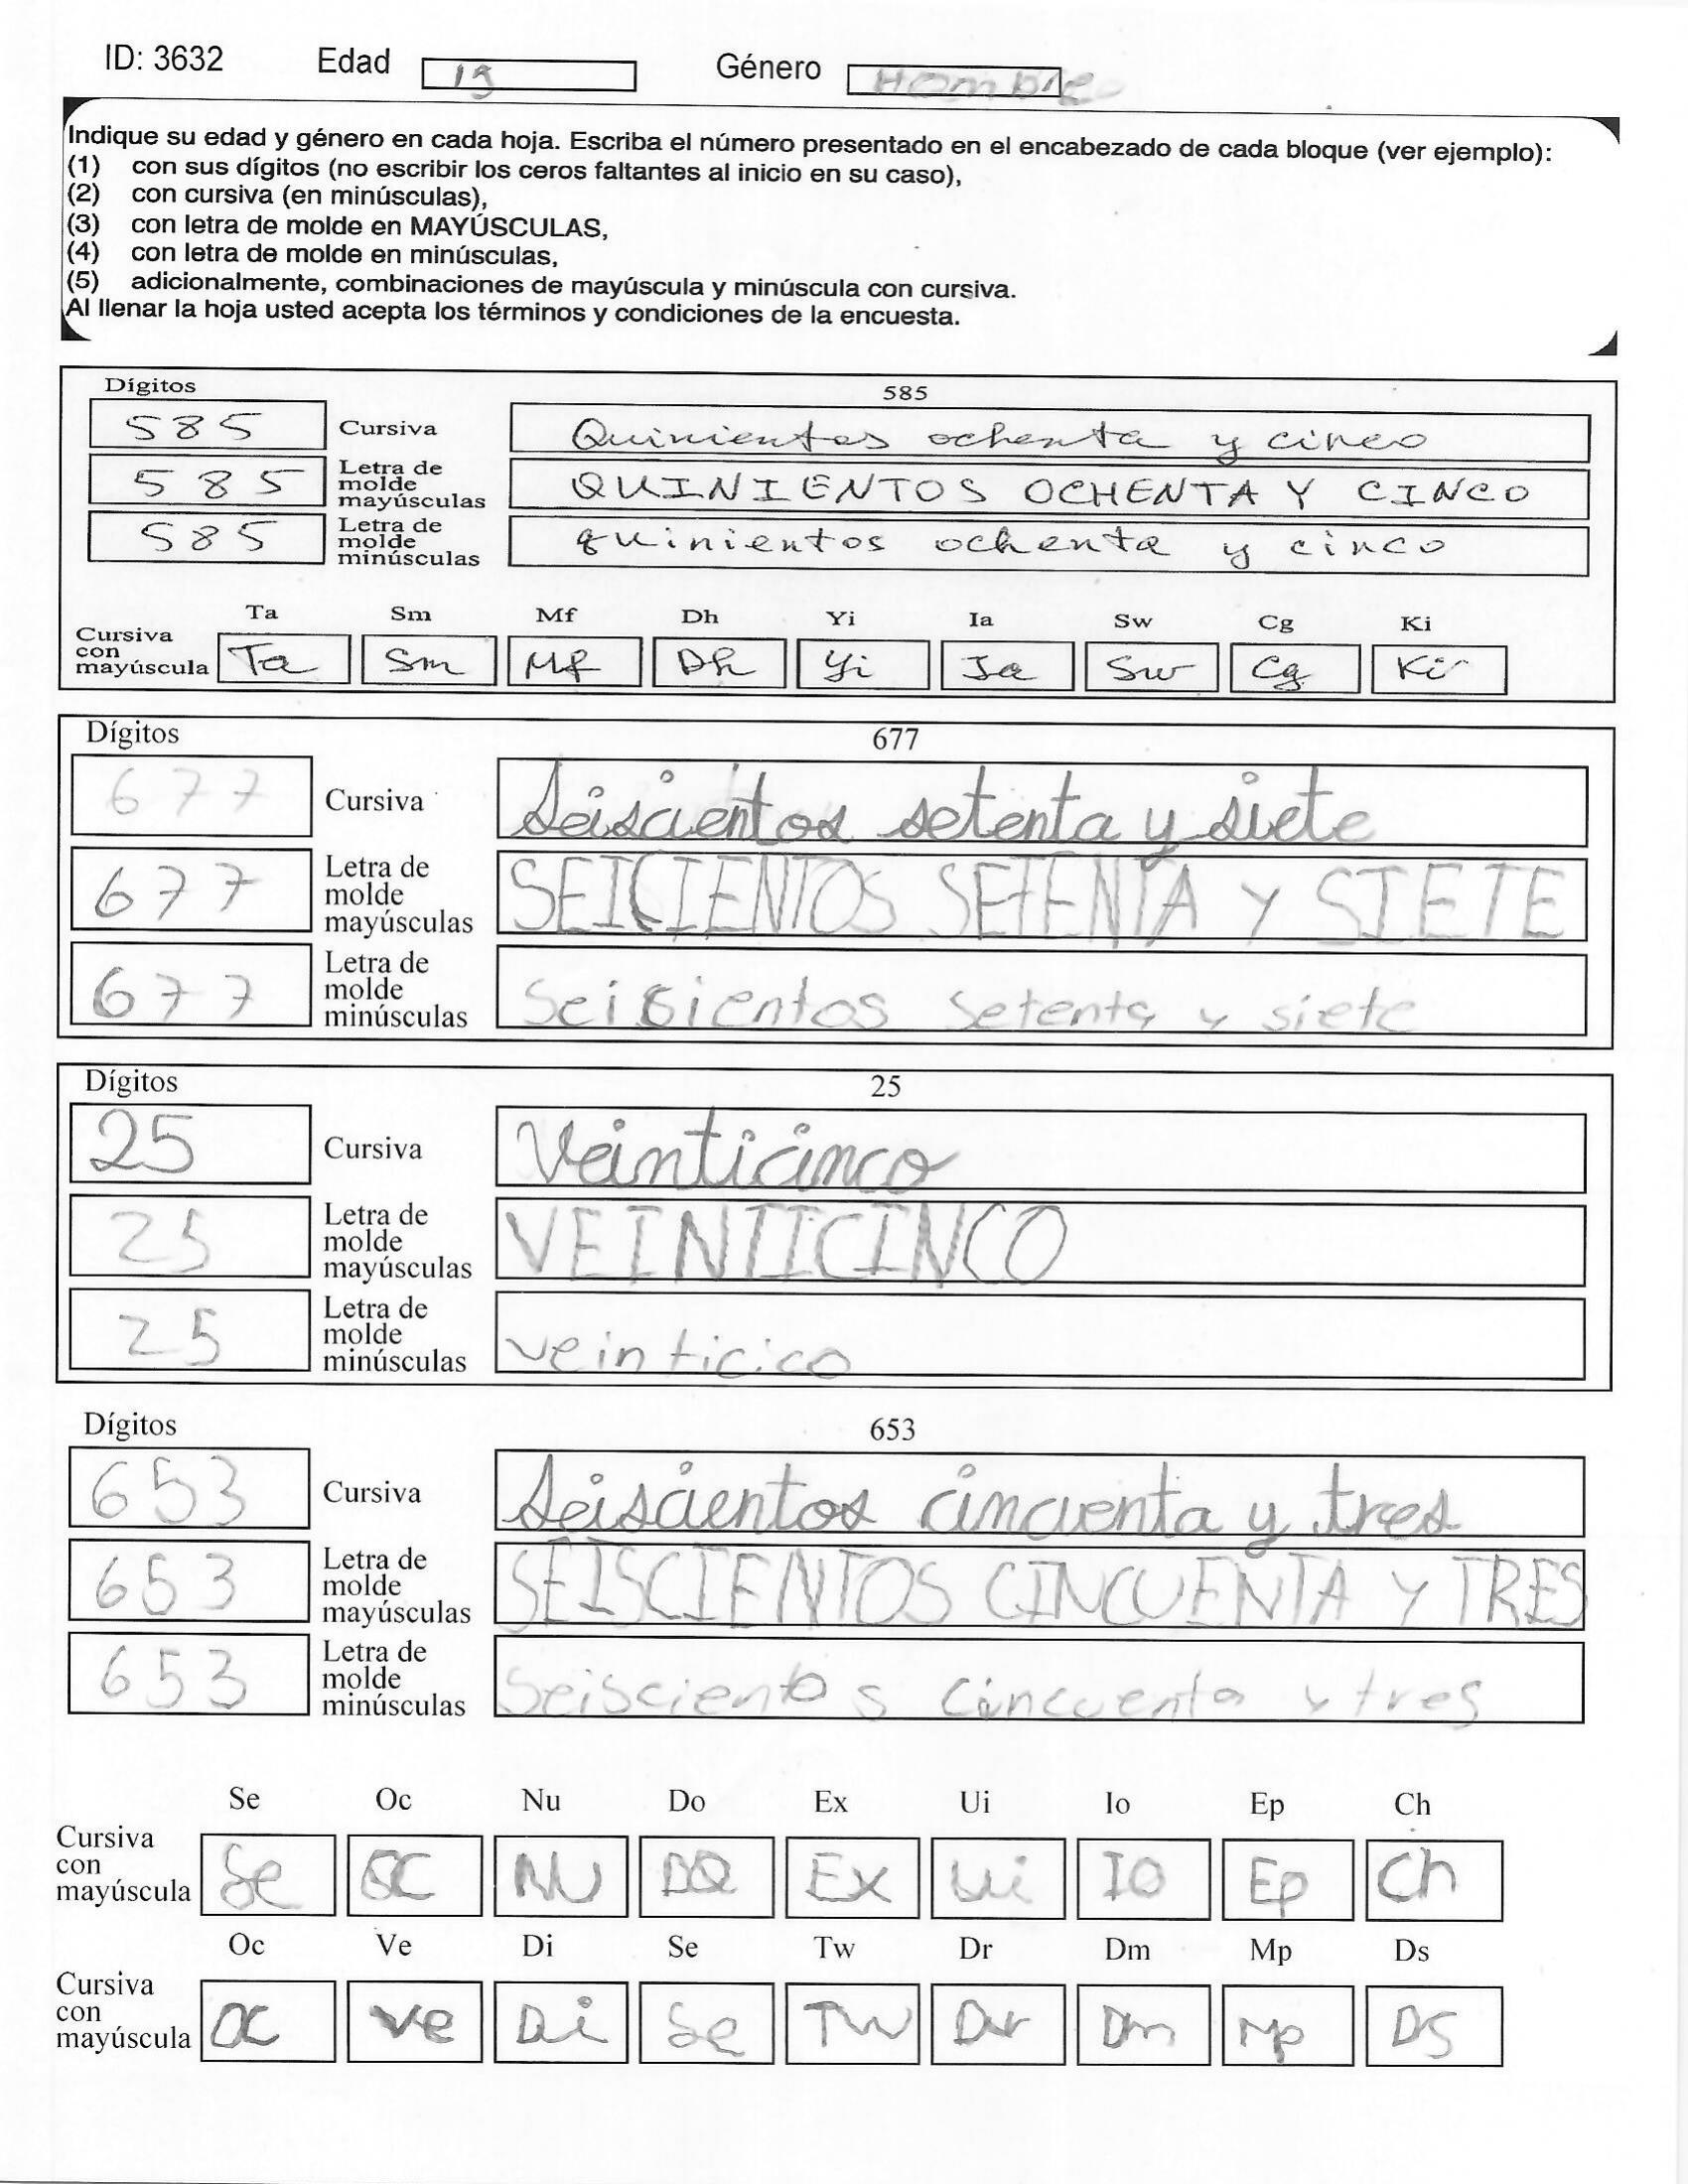 ID: 3632 Edad 19 Género Hombre
Indique su edad y género en cada hoja. Escriba el número presentado en el encabezado de cada bloque (ver ejemplo):
(1) con sus dígitos (no escribir los ceros faltantes al inicio en su caso),
(2) con cursiva (en minúsculas),
(3) con letra de molde en MAYÚSCULAS,
(4) con letra de molde en minúsculas,
(5) adicionalmente, combinaciones de mayúscula y minúscula con cursiva.
Al llenar la hoja usted acepta los términos y condiciones de la encuesta.
Dígitos 585
585 Cursiva Quinientos ochenta y cinco
585 Letra de molde mayúsculas QUINIENTOS OCHENTA Y CINCO
585 Letra de molde minúsculas quinientos ochenta y cinco
Ta Sm Mf Dh Yi Ia Sw Cg Ki
Cursiva con mayúscula Ta Sm Mf Dh Yi Ia Sw Cg Ki
Dígitos 677
677 Cursiva Seiscientos setenta y siete
677 Letra de molde mayúsculas SEICIENTOS SETENTA Y SIETE
677 Letra de molde minúsculas Seisientos setenta y siete
Dígitos 25
25 Cursiva Veinticinco
25 Letra de molde mayúsculas VEINTICINCO
25 Letra de molde minúsculas veinticico
Dígitos 653
653 Cursiva Seiscientos cincuenta y tres
653 Letra de molde mayúsculas SEISCIENTOS CINCUENTA Y TRES
653 Letra de molde minúsculas Seiscientos cincuenta y tres
Se Oc Nu Do Ex Ui Io Ep Ch
Cursiva con mayúscula Se OC NU DO Ex Ui IO Ep Ch
Oc Ve Di Se Tw Dr Dm Mp Ds
Cursiva con mayúscula OC Ve Di Se Tw Dr Dm Mp Ds